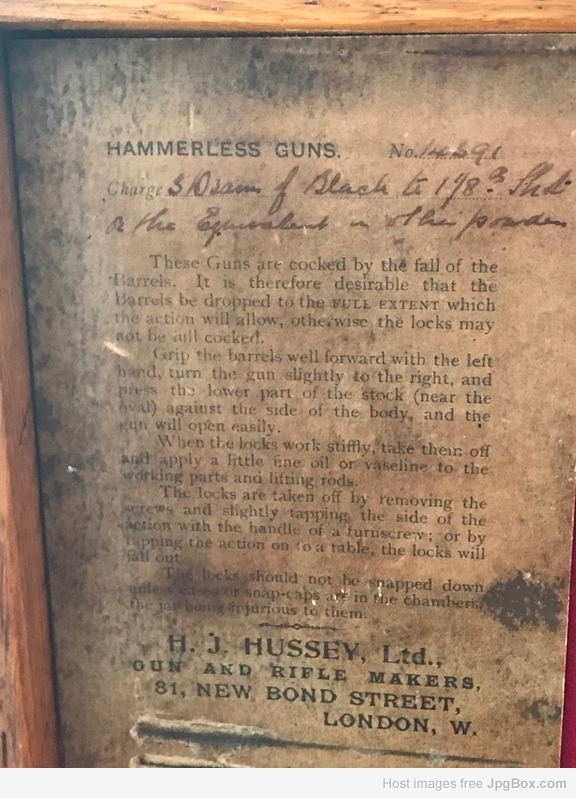 HAMMERLESS GUNS. No. 14391
Charge 3 Drams of Black to 1 1/8 oz Shot
or the Equivalent in other powder
These Guns are cocked by the fall of the
Barrels. It is therefore desirable that the
Barrels be dropped to the FULL EXTENT which
the action will allow, otherwise the locks may
not be full cocked.
Grip the barrels well forward with the left
hand, turn the gun slightly to the right, and
press the lower part of the stock (near the
oval) against the side of the body, and the
gun will open easily.
When the locks work stiffly, take them off
and apply a little fine oil or vaseline to the
working parts and lifting rods.
The locks are taken off by removing the
screws and slightly tapping the side of the
action with the handle of a turnscrew; or by
tapping the action on to a table, the locks will
fall out.
The locks should not be snapped down
unless cases or snap-caps are in the chambers,
the jar being injurious to them.
H. J. HUSSEY, Ltd.,
GUN AND RIFLE MAKERS,
81, NEW BOND STREET,
LONDON, W.
Host images free JpgBox.com